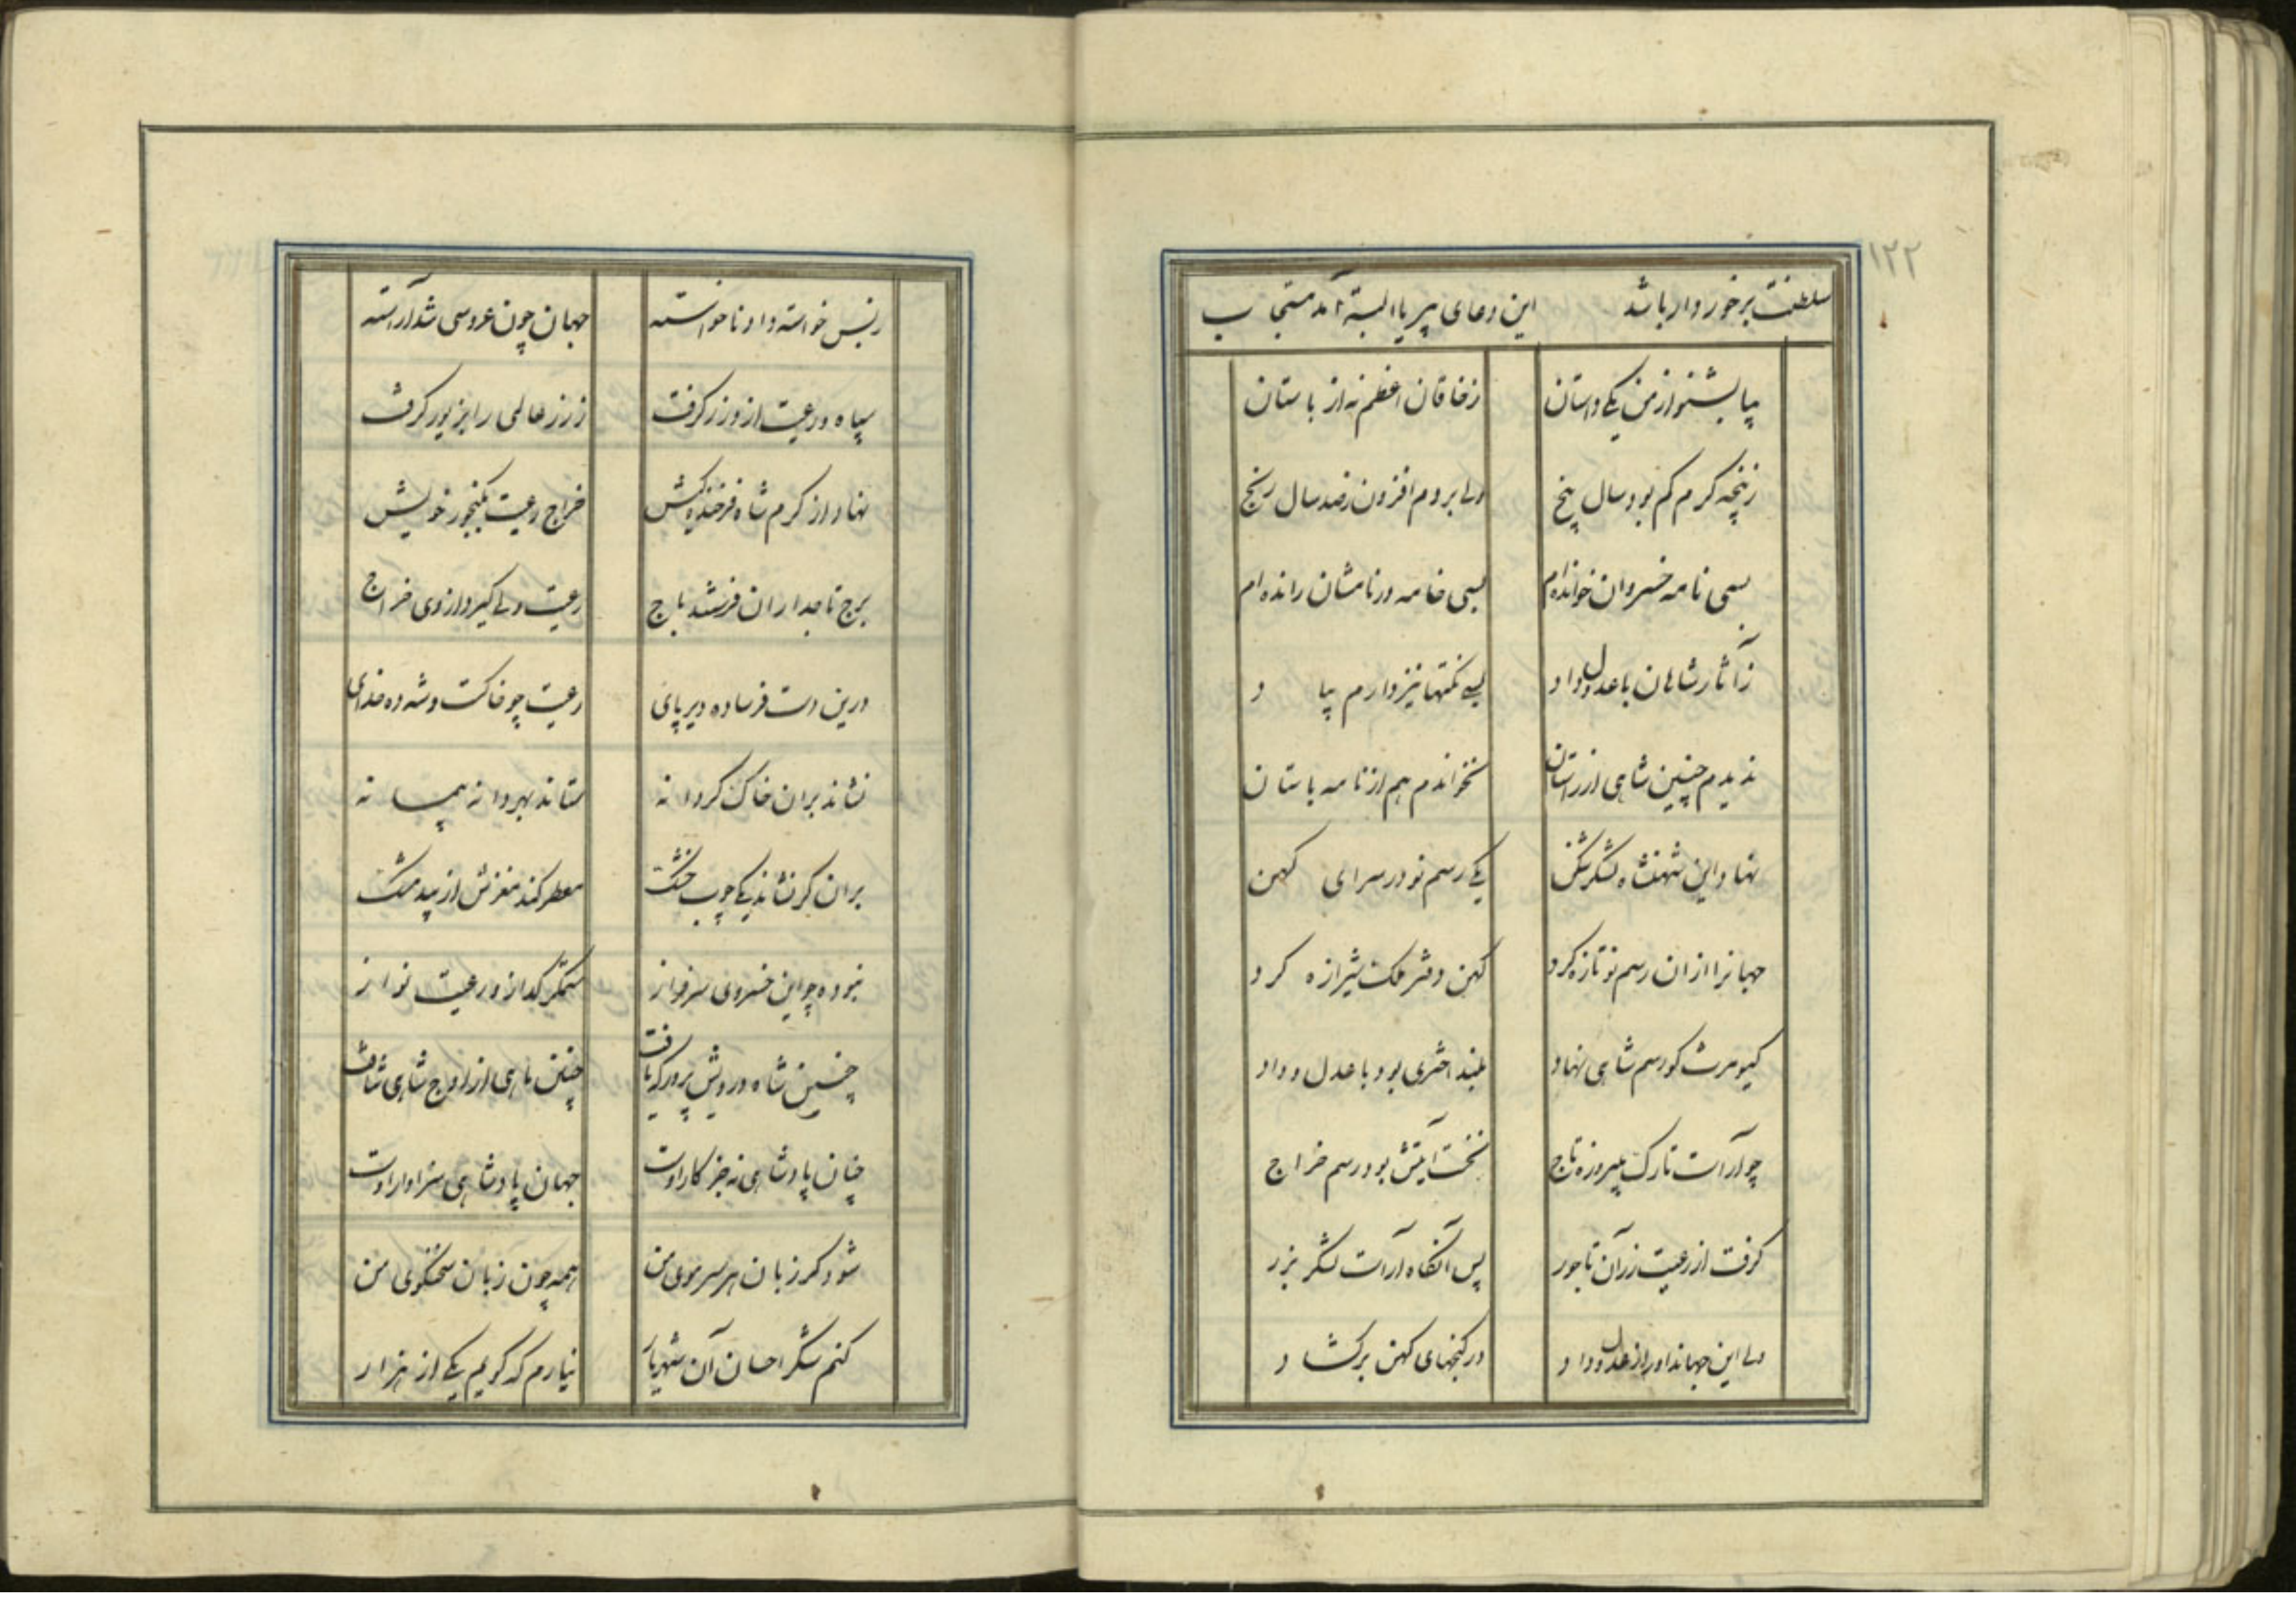 ۱۲۲
سلطنت برخوردار باشد این دعای پیر یا البته آمد مستجاب
بیا بشنو از من یکی داستان ز خاقان اعظم نه از باستان
ز پنجه گرم کم بود سال پنج ولی بردم افزون ز صد سال رنج
بسی نامه خسروان خوانده‌ام بسی خامه در نامشان رانده‌ام
ز آثار شاهان با عدل و داد بسی نکتها نیز دارم بیاد
ندیدم چنین شاهی از راستان نخواندم هم از نامه باستان
نهاد این شهنشاه لشکرشکن یکی رسم نو در سرای کهن
جهانرا از ان رسم نو تازه کرد کهن دفتر ملک شیرازه کرد
کیومرث کو رسم شاهی نهاد بلند اختری بود با عدل و داد
چو آراست تارک بپیروزه تاج نخست آیتش بود رسم خراج
گرفت از رعیت زر آن تاجور پس آنگاه آراست لشکر بزر
ولی این جهاندار از عدل و داد در گنجهای کهن برگشاد
ز بس خواسته داد ناخواسته جهان چون عروسی شد آراسته
سپاه و رعیت ازو زر گرفت ز زر عالمی را بزیور گرفت
نهاد از کرم شاه فرخنده کیش خراج رعیت بگنجور خویش
برج تاجداران فرستند باج رعیت ولی گیرد از وی خراج
درین دست فرساده دیرپای رعیت چو خاکست و شه ده خدای
نشاند بران خاک گر دانه ستاند بهر دانه پیمانه
بران گر نشاند یکی چوب خشک معطر کند مغزش از بید مشک
نبوده چو این خسروی سرفراز ستمگر گداز و رعیت نواز
چنین شاه درویش پرور که یافت چنین ماهی از اوج شاهی نتافت
چنان پادشاهی نه جز کار اوست جهان پادشاهی سزاوار اوست
شود گر زبان هر سر موی من همه چون زبان سخنگوی من
کنم شکر احسان آن شهریار نیارم که گویم یکی از هزار